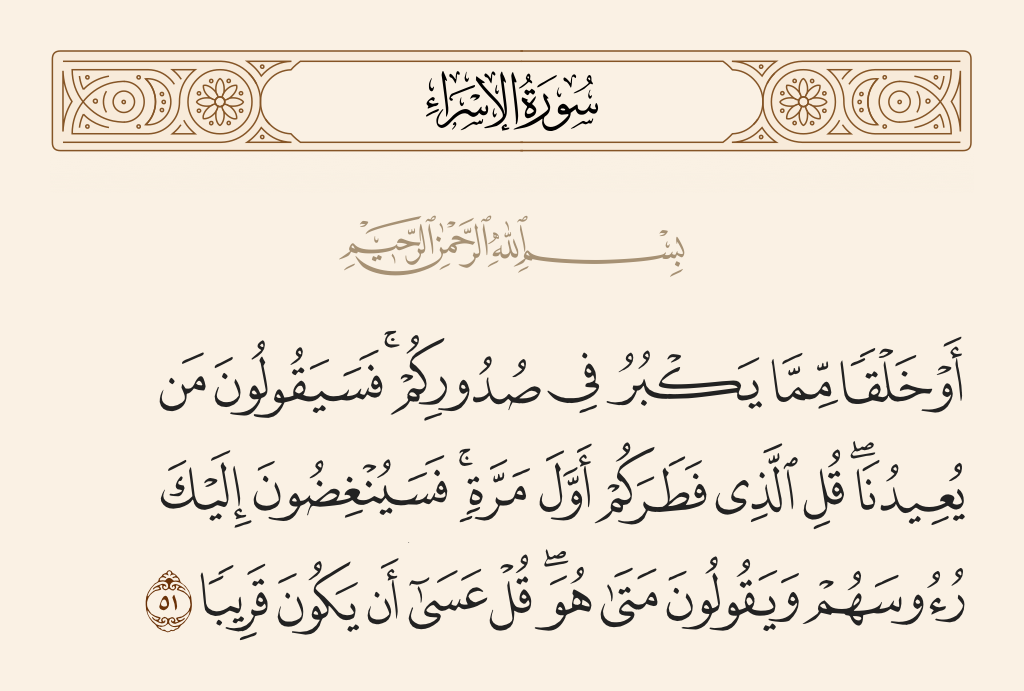 سُورَةُ الإِسْرَاءِ
بِسْمِ ٱللَّهِ ٱلرَّحْمَٰنِ ٱلرَّحِيمِ
أَوْ خَلْقًا مِّمَّا يَكْبُرُ فِى صُدُورِكُمْ ۚ فَسَيَقُولُونَ مَن
يُعِيدُنَا ۖ قُلِ ٱلَّذِى فَطَرَكُمْ أَوَّلَ مَرَّةٍ ۚ فَسَيُنْغِضُونَ إِلَيْكَ
رُءُوسَهُمْ وَيَقُولُونَ مَتَىٰ هُوَ ۖ قُلْ عَسَىٰٓ أَن يَكُونَ قَرِيبًا ٥١